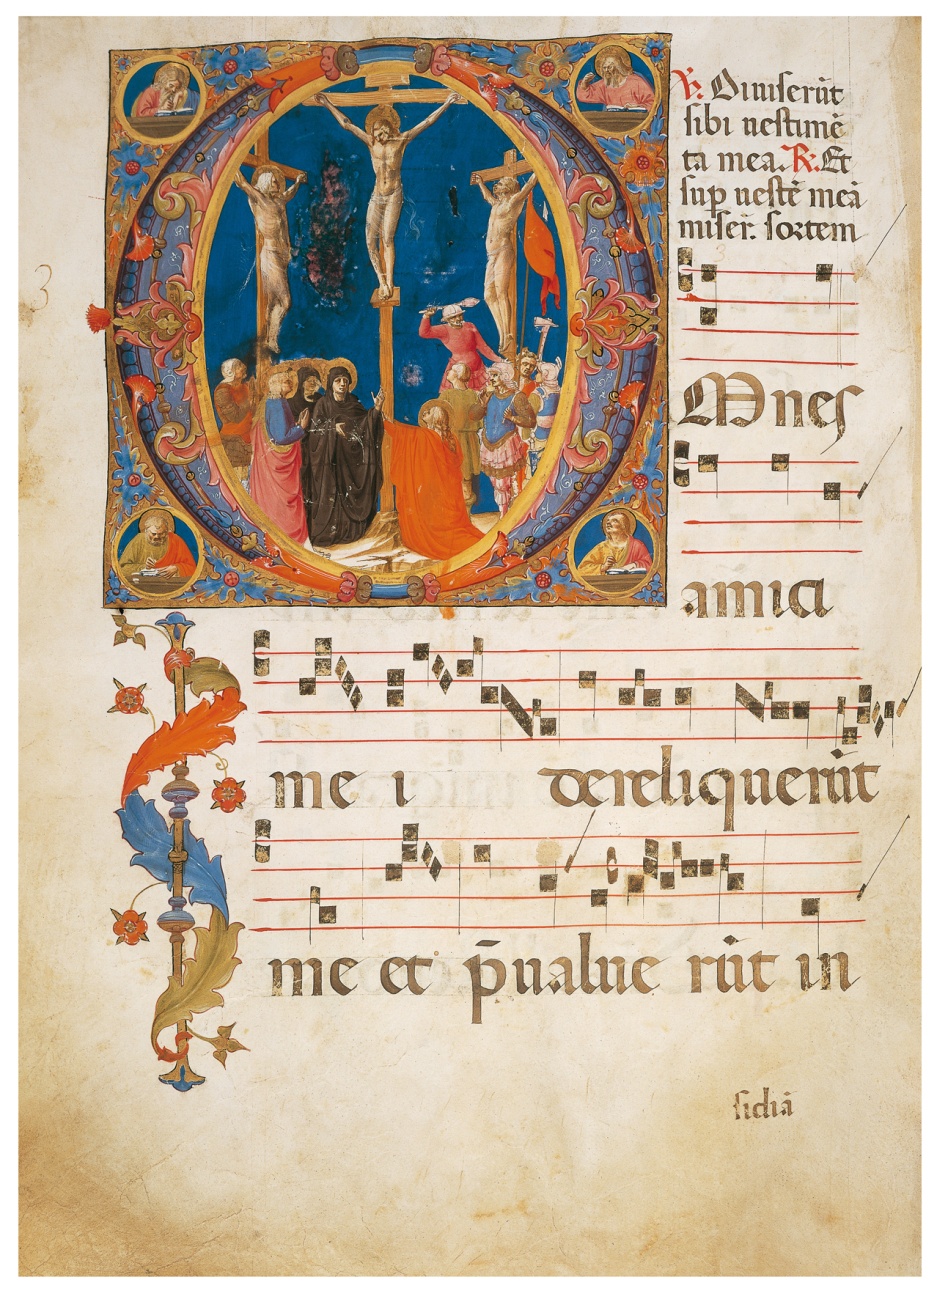 ℣. Diuiserūt
sibi uestimē
ta mea. ℟. Et
sup uestē meā
miser. sortem
3
OMnes
amici
me i dereliquerūt
me et p̄ualue rūt in
sidiā